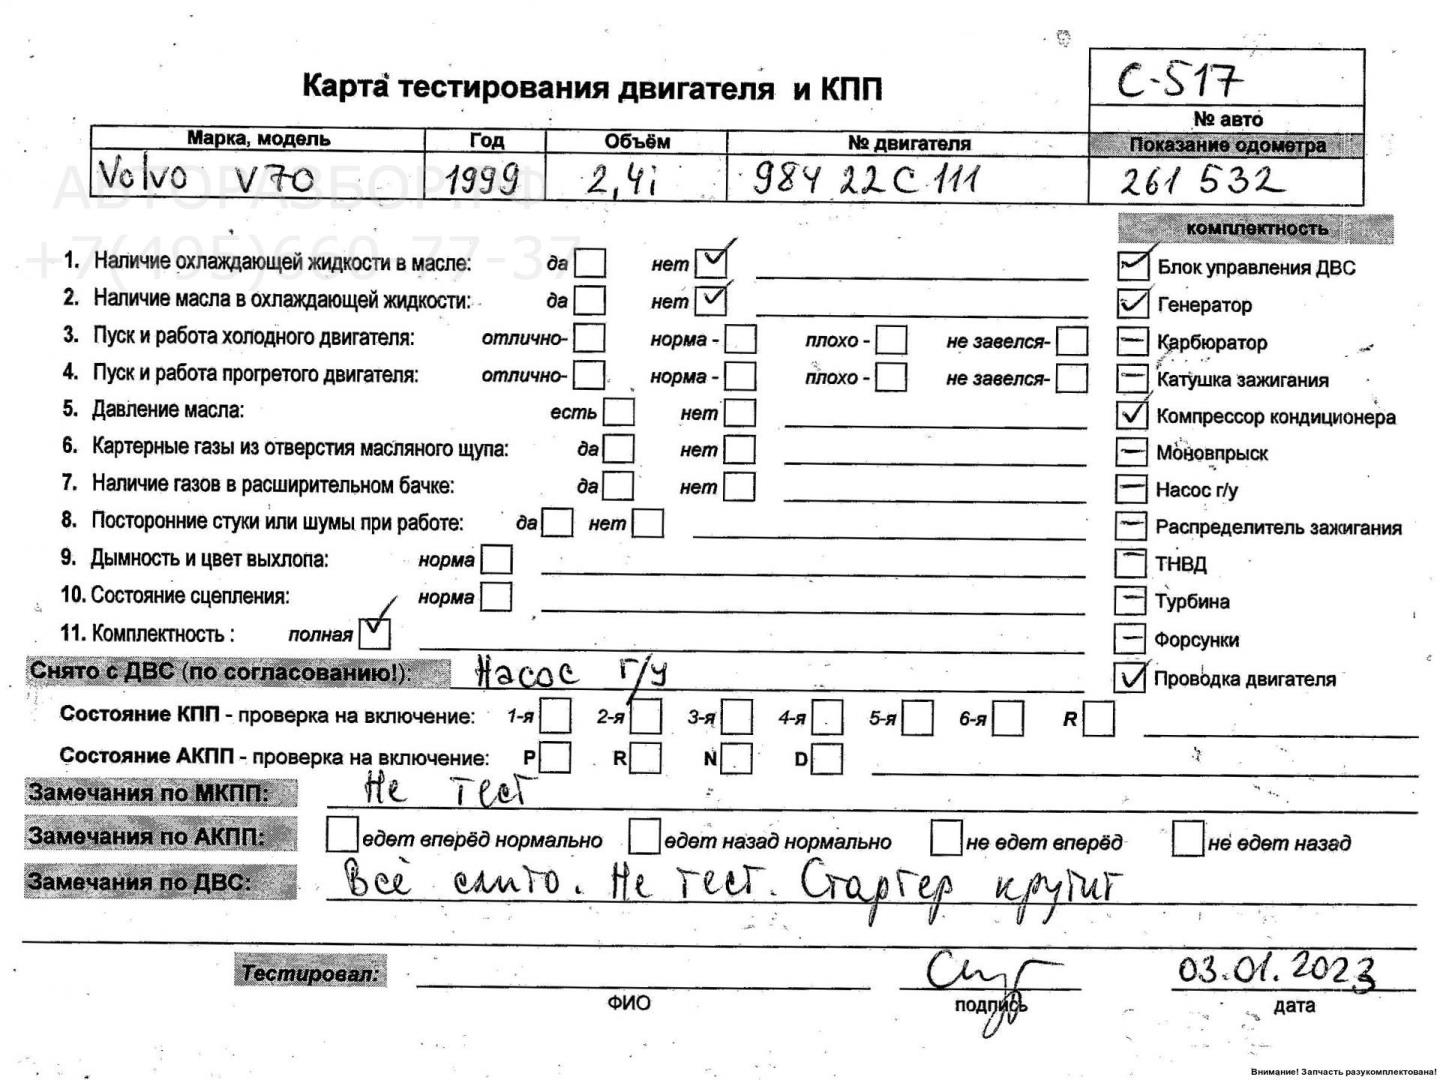 С-517
Карта тестирования двигателя и КПП
№ авто
Марка, модель Год Объём № двигателя Показание одометра
Volvo V70 1999 2,4i 984 22C 111 261 532
АВТОРАЗБОР.РФ
+7(495)660-77-37
комплектность
1. Наличие охлаждающей жидкости в масле: да нет Блок управления ДВС
2. Наличие масла в охлаждающей жидкости: да нет Генератор
3. Пуск и работа холодного двигателя: отлично- норма - плохо - не завелся- Карбюратор
4. Пуск и работа прогретого двигателя: отлично- норма - плохо - не завелся- Катушка зажигания
5. Давление масла: есть нет Компрессор кондиционера
6. Картерные газы из отверстия масляного щупа: да нет Моновпрыск
7. Наличие газов в расширительном бачке: да нет Насос г/у
8. Посторонние стуки или шумы при работе: да нет Распределитель зажигания
9. Дымность и цвет выхлопа: норма ТНВД
10. Состояние сцепления: норма Турбина
11. Комплектность : полная Форсунки
Снято с ДВС (по согласованию!): Насос г/у Проводка двигателя
Состояние КПП - проверка на включение: 1-я 2-я 3-я 4-я 5-я 6-я R
Состояние АКПП - проверка на включение: P R N D
Замечания по МКПП: Не тест
Замечания по АКПП: едет вперёд нормально едет назад нормально не едет вперёд не едет назад
Замечания по ДВС: Всё слито. Не тест. Стартер крутит
Тестировал: 03.01.2023
ФИО подпись дата
Внимание! Запчасть разукомплектована!